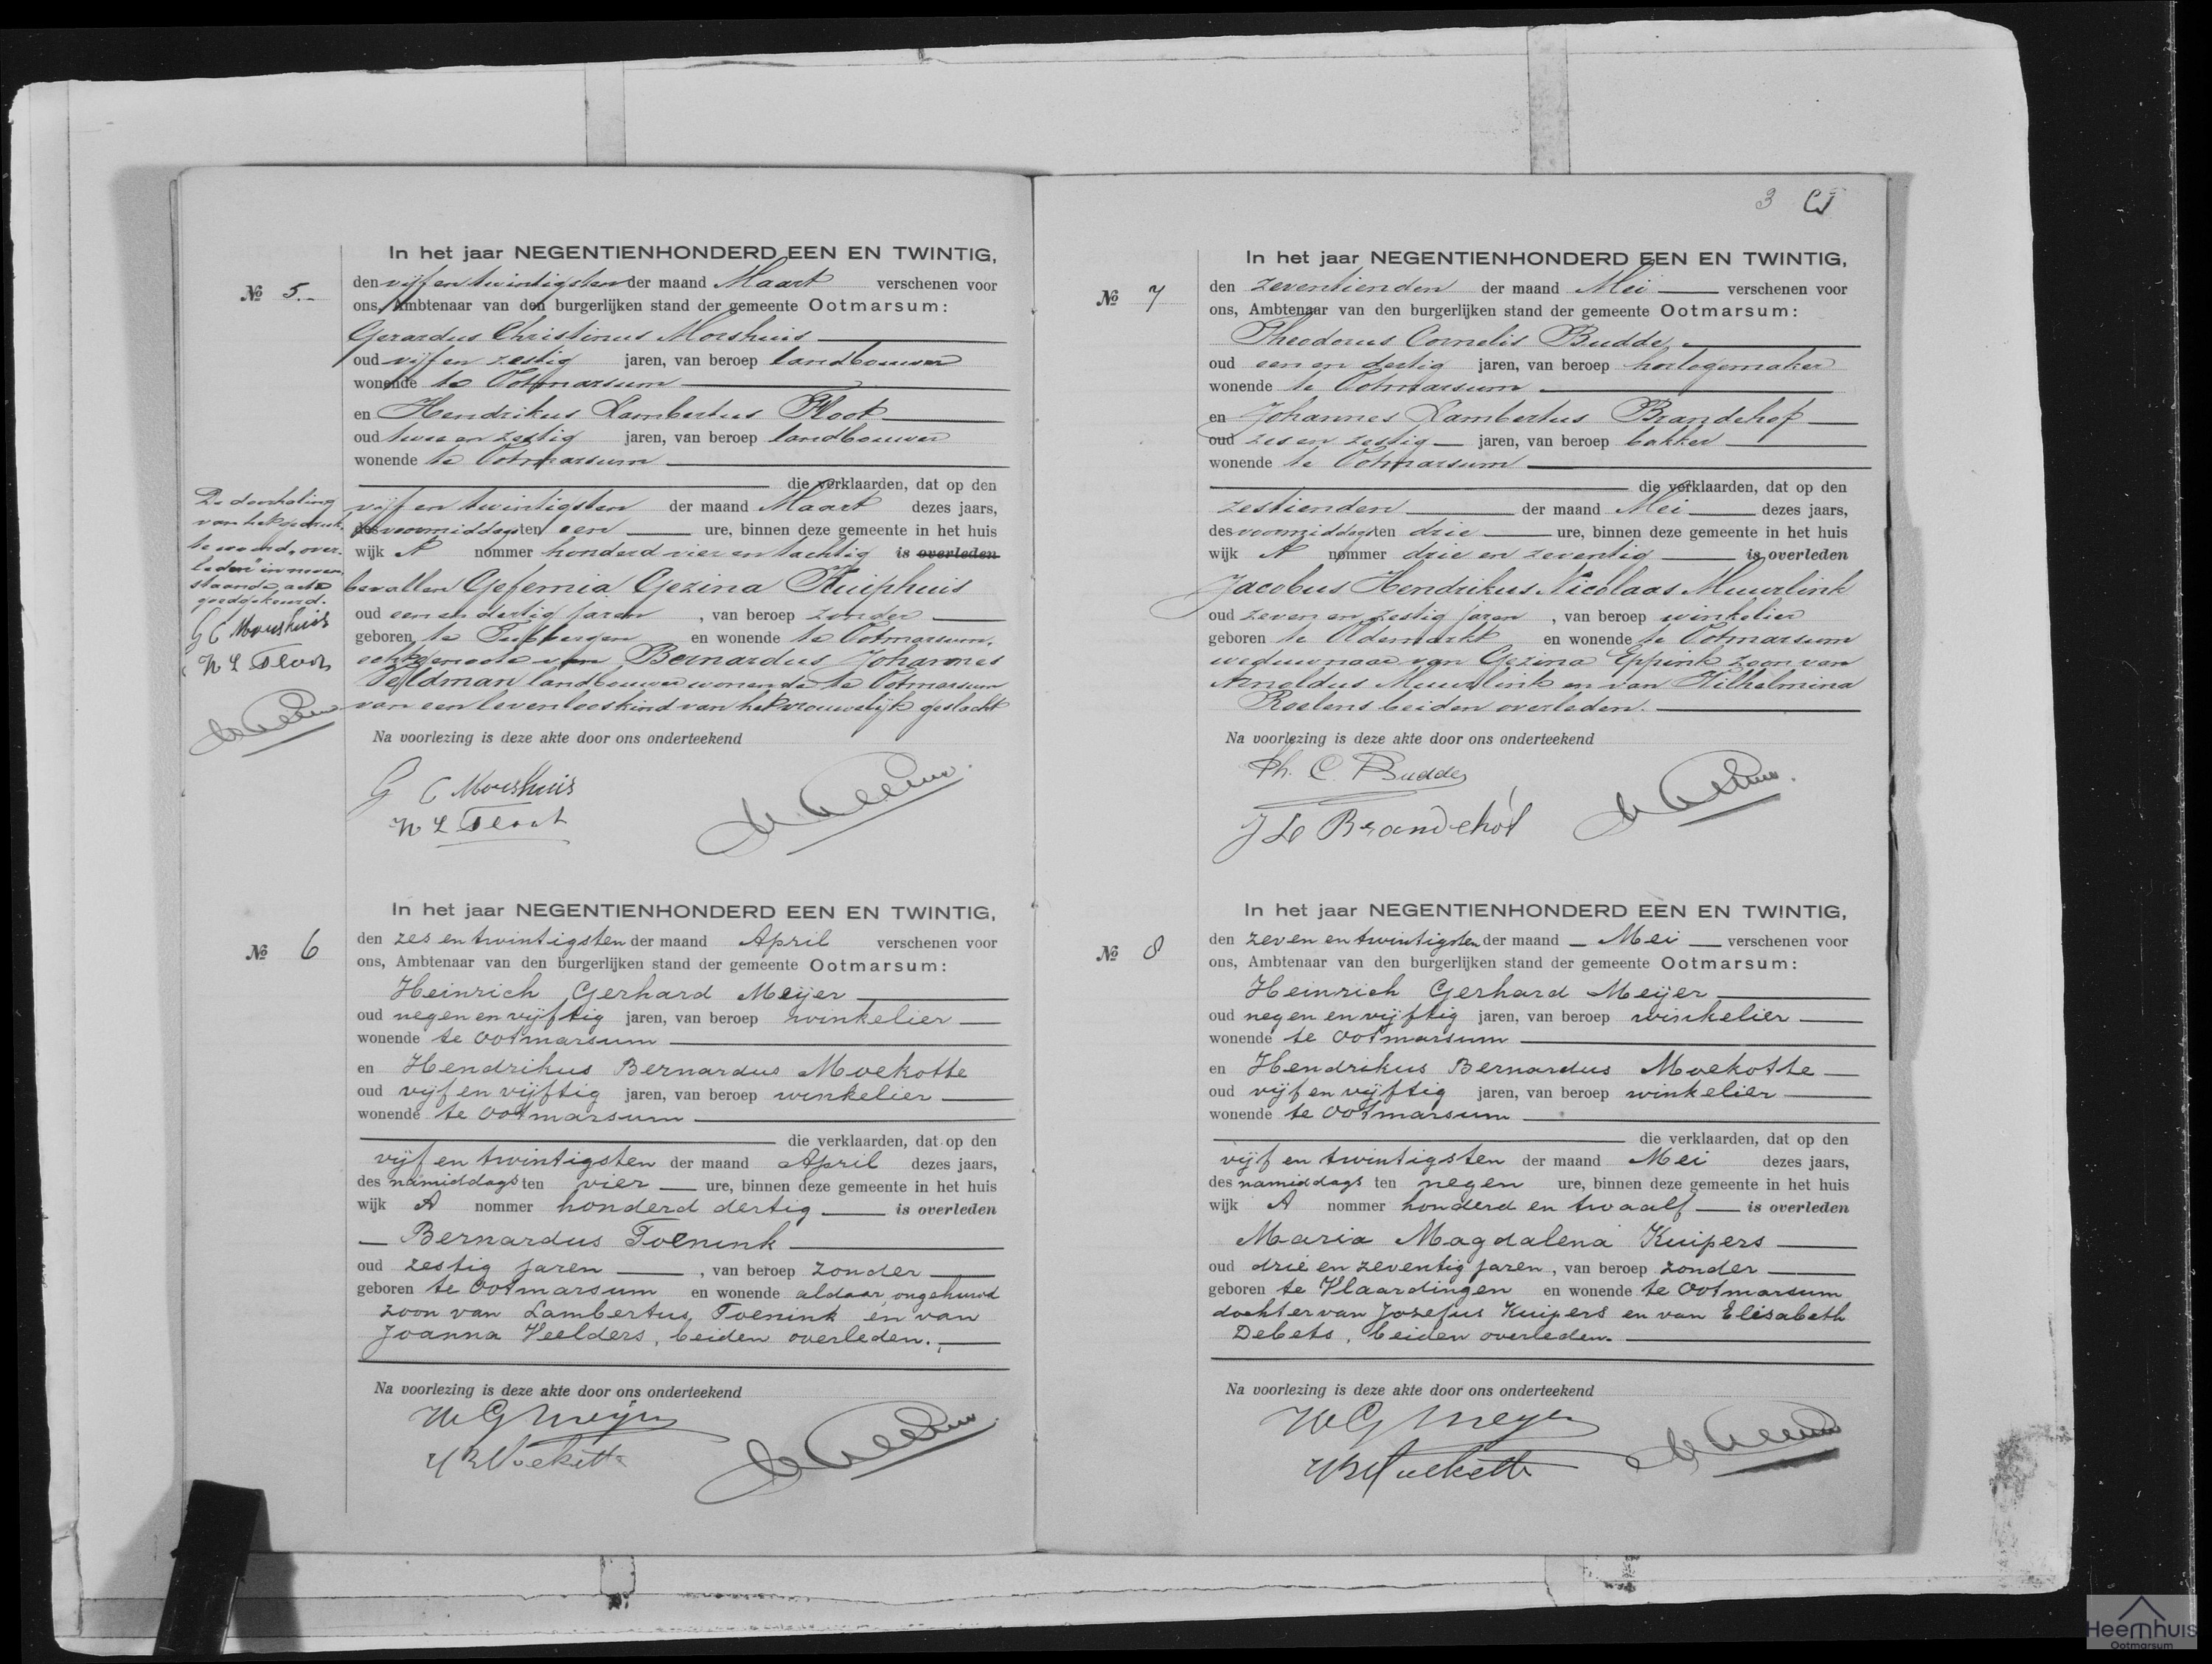 In het jaar NEGENTIENHONDERD EEN EN TWINTIG,
№ 5.-
den vijf en twintigsten der maand Maart verschenen voor
ons, Ambtenaar van den burgerlijken stand der gemeente Ootmarsum:
Gerardus Christinus Morshuis
oud vijf en zestig jaren, van beroep landbouwer
wonende te Ootmarsum
en Hendrikus Lambertus Floot
oud twee en zestig jaren, van beroep landbouwer
wonende te Ootmarsum
die verklaarden, dat op den
vijf en twintigsten der maand Maart dezes jaars,
des voormiddags ten een ure, binnen deze gemeente in het huis
wijk A nommer honderd vier en tachtig is overleden
bevallen Gefernia Gezina Kuiphuis
oud een en dertig jaren, van beroep zonder
geboren te Tubbergen en wonende te Ootmarsum,
echtgenoote van Bernardus Johannes
Veldman landbouwer wonende te Ootmarsum
van een levenloos kind van het vrouwelijk geslacht
Na voorlezing is deze akte door ons onderteekend
G C Morshuis
H L Floot
De doorhaling
van het gedruk-
te woord „over-
leden" in neven-
staande acte
goedgekeurd.
G C Morshuis
H L Floot
In het jaar NEGENTIENHONDERD EEN EN TWINTIG,
№ 6
den zes en twintigsten der maand April verschenen voor
ons, Ambtenaar van den burgerlijken stand der gemeente Ootmarsum:
Heinrich Gerhard Meijer
oud negen en vijftig jaren, van beroep winkelier
wonende te Ootmarsum
en Hendrikus Bernardus Moekotte
oud vijf en vijftig jaren, van beroep winkelier
wonende te Ootmarsum
die verklaarden, dat op den
vijf en twintigsten der maand April dezes jaars,
des namiddags ten vier ure, binnen deze gemeente in het huis
wijk A nommer honderd dertig is overleden
Bernardus Toenink
oud zestig jaren, van beroep zonder
geboren te Ootmarsum en wonende aldaar, ongehuwd
zoon van Lambertus Toenink en van
Joanna Veelders, beiden overleden.
Na voorlezing is deze akte door ons onderteekend
H G Meijer
H B Moekotte
3
In het jaar NEGENTIENHONDERD EEN EN TWINTIG,
№ 7
den zeventienden der maand Mei verschenen voor
ons, Ambtenaar van den burgerlijken stand der gemeente Ootmarsum:
Theodorus Cornelis Budde
oud een en dertig jaren, van beroep horlogemaker
wonende te Ootmarsum
en Johannes Lambertus Brandehof
oud zes en zestig jaren, van beroep bakker
wonende te Ootmarsum
die verklaarden, dat op den
zestienden der maand Mei dezes jaars,
des voormiddags ten drie ure, binnen deze gemeente in het huis
wijk A nommer drie en zeventig is overleden
Jacobus Hendrikus Nicolaas Muurlink
oud zeven en zestig jaren, van beroep winkelier
geboren te Oldemarkt en wonende te Ootmarsum
weduwnaar van Gezina Eppink zoon van
Arnoldus Muurlink en van Wilhelmina
Roelens beiden overleden.
Na voorlezing is deze akte door ons onderteekend
Th. C. Budde
J L Brandehof
In het jaar NEGENTIENHONDERD EEN EN TWINTIG,
№ 8
den zeven en twintigsten der maand Mei verschenen voor
ons, Ambtenaar van den burgerlijken stand der gemeente Ootmarsum:
Heinrich Gerhard Meijer
oud negen en vijftig jaren, van beroep winkelier
wonende te Ootmarsum
en Hendrikus Bernardus Moekotte
oud vijf en vijftig jaren, van beroep winkelier
wonende te Ootmarsum
die verklaarden, dat op den
vijf en twintigsten der maand Mei dezes jaars,
des namiddags ten negen ure, binnen deze gemeente in het huis
wijk A nommer honderd en twaalf is overleden
Maria Magdalena Kuipers
oud drie en zeventig jaren, van beroep zonder
geboren te Vlaardingen en wonende te Ootmarsum
dochter van Josefus Kuipers en van Elisabeth
Debets, beiden overleden.
Na voorlezing is deze akte door ons onderteekend
H G Meyer
H B Moekotte
Heemhuis
Ootmarsum